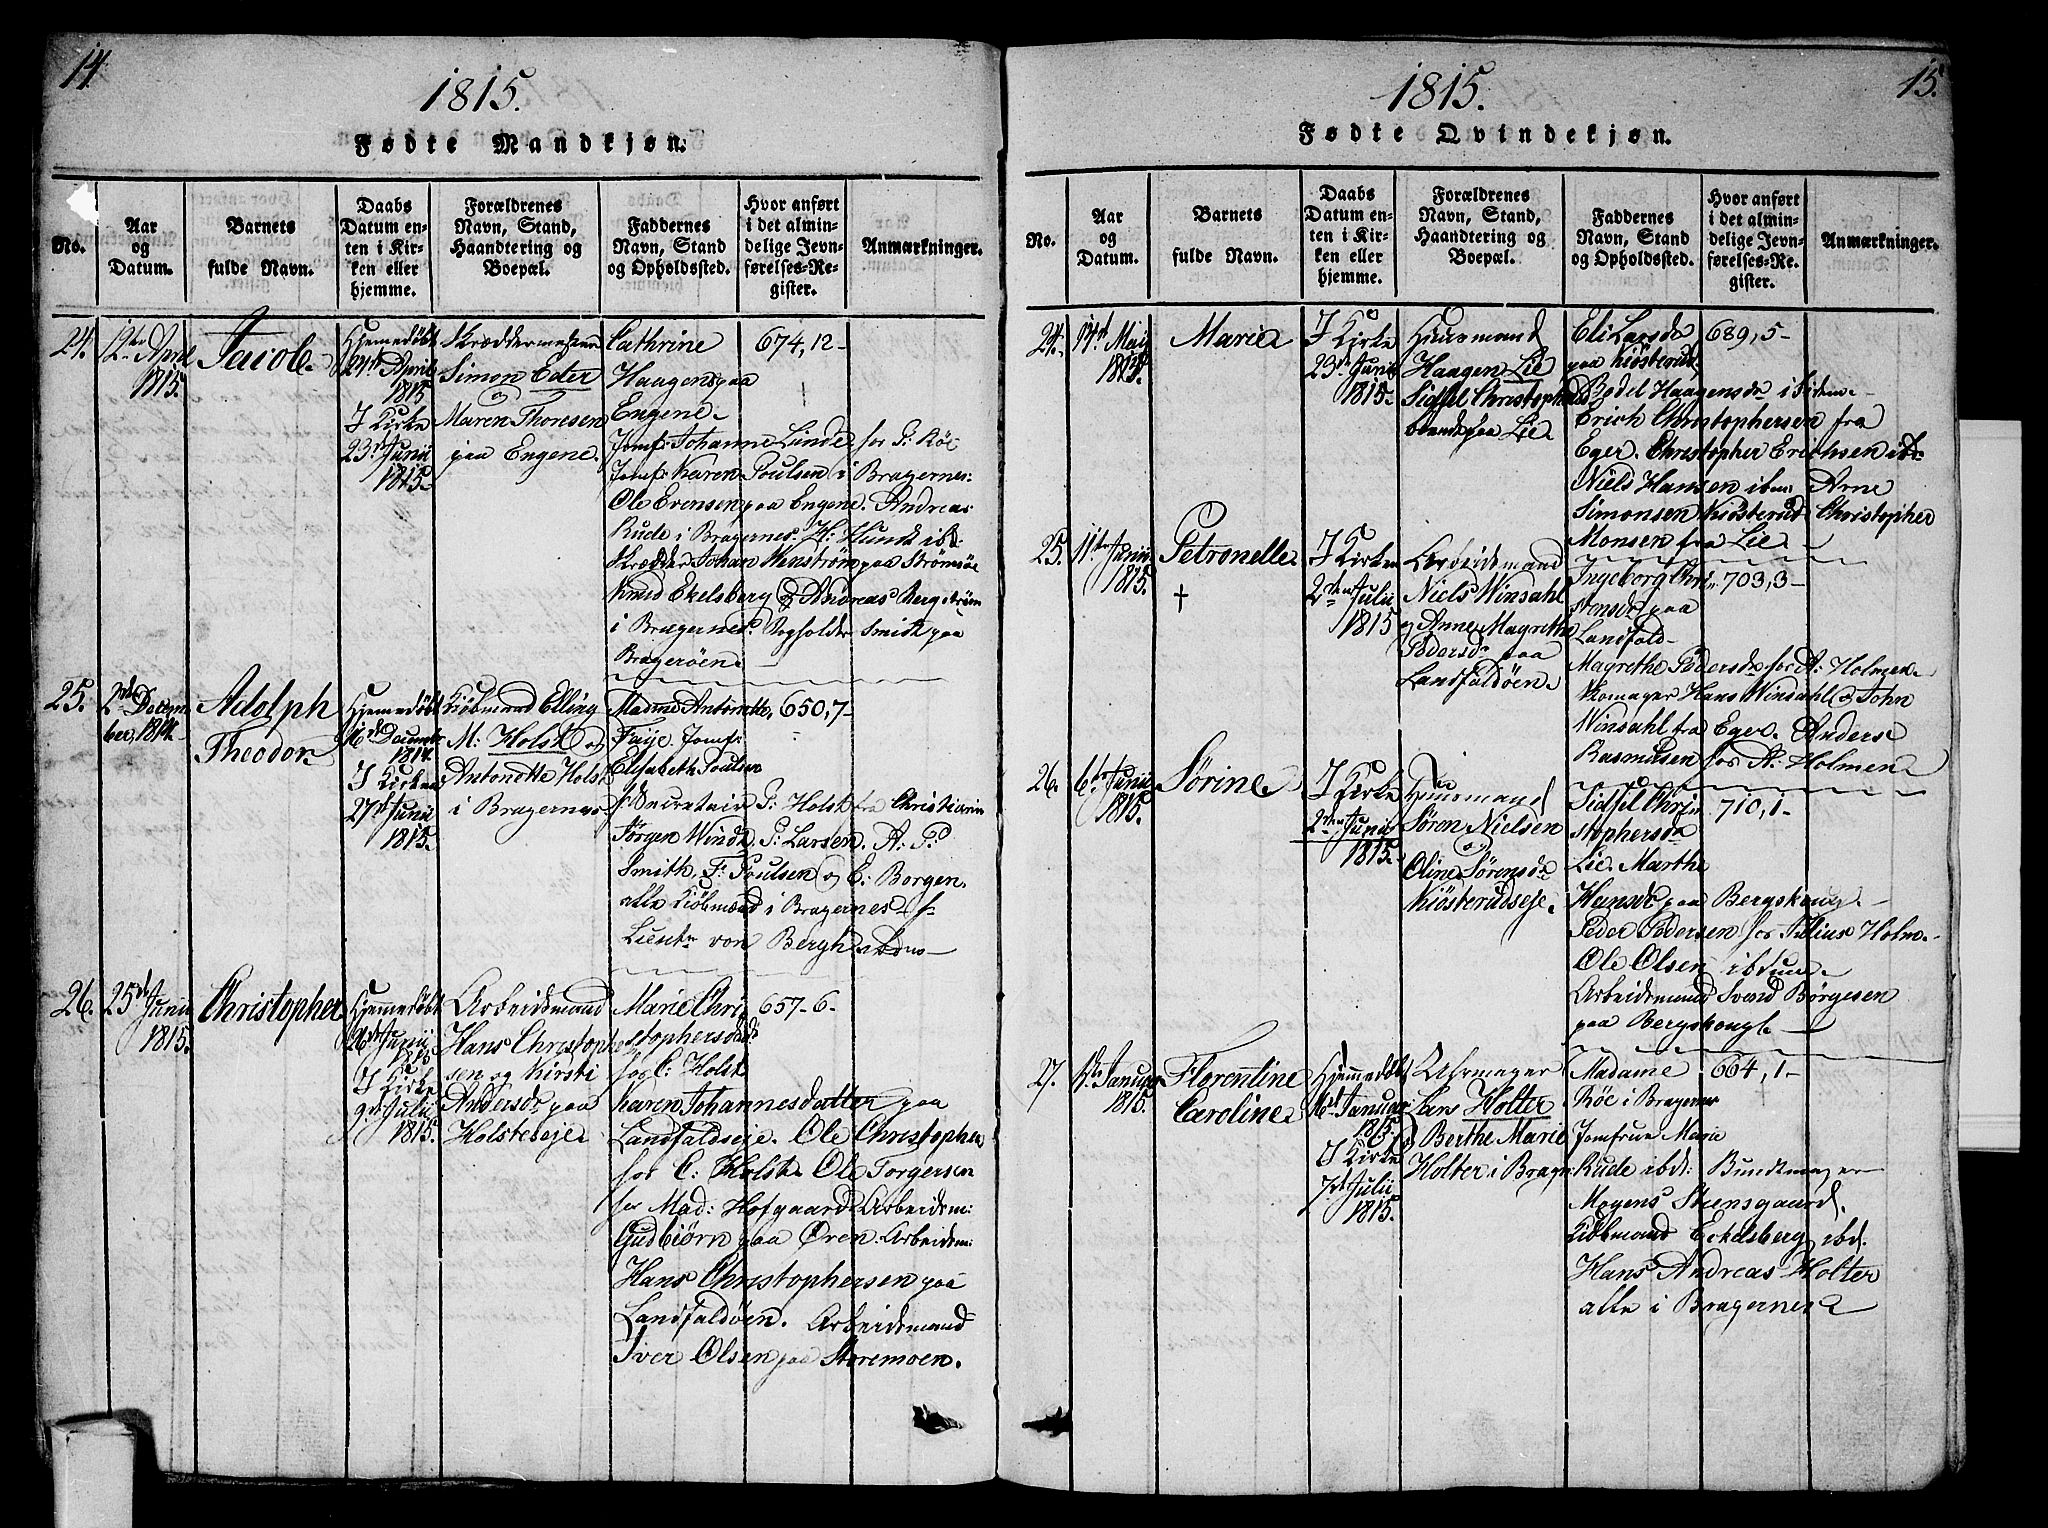 14.
1815.
Fødte Mandkjøn.
No.
Aar
og
Datum.
Barnets
fulde Navn.
Daabs
Datum en-
ten i Kir-
ken eller
hjemme.
Forældrenes
Navn, Stand,
Haandtering og
Boepæl.
Faddernes
Navn, Stand
og Opholdssted.
Hvor anført
i det almin-
delige Jevn-
førelses-Re-
gister.
Anmærkninger.
24.
12te April
1815.
Jacob
Hjemedöbt
24de April
1815
I Kirke
23de Junii
1815.
Skræddermester
Simon Eder
og
Maren Thoresen
paa Engene.
Cathrine
Haagens paa
Engene.
Jomf: Johanne Linde for P: Röe
Jomf: Karen Poulsen i Bragernes.
Ole Evensen paa Engene. Andreas
Rude i Bragernes. H: Klundt ibd:
Skrædder Johan Wenström paa Strömsöe
Knud Ekelsberg og Andreas Bergström
i Bragernes. Smith paa
Brageröen
674,12-
25.
2de Decem-
ber, 1814.
Adolph
Theodor
Hjemedöbt
16de Decembr
1814.
I Kirken
27de Junii
1815.
Kiöbmand Elling
M: Holst og
Antonette Holst
i Bragernes
Madme Antonette
Faye. Jomf:
Elisabeth Poulsen
Secretair P: Holst fra Christiania
Jörgen Windt. P: Larsen. A: P:
Smith, F: Poulsen og E: Borgen.
alle Kiöbmænd i Bragernes
Lieutn von Bergh
650,7-
26.
25de Junii
1815.
Christopher
Hjemmedöbt
26de Junii
1815
I Kirke
9de Julii
1815.
Arbeidsmand
Hans Christopher
sen og Kirsti
Andersdr paa
Holsteseje
Marie Chri
stophersdr
hos C: Holst
Karen Johannesdatter paa
Landfaldseje. Ole Christophersen
hos C: Holst. Ole Torgersen
hos Mad: Hofgaard Arbeidsm:
Gudbiörn paa Ören. Arbeidsm:
Hans Christophersen paa
Landfaldöen. Arbeidsmand
Iver Olsen paa Storemoen.
657-6.
15.
1815.
Fødte Qvindekjøn.
No.
Aar
og
Datum.
Barnets
fulde Navn.
Daabs
Datum en-
ten i Kir-
ken eller
hjemme.
Forældrenes
Navn, Stand,
Haandtering og
Boepæl.
Faddernes
Navn, Stand
og Opholdssted.
Hvor anført
i det almin-
delige Jevn-
førelses-Re-
gister.
Anmærkninger.
24.
14de Maij
1815.
Marie
I Kirke
23de Junii
1815.
Huusmand
Haagen Lie
Sidsel Christophers
paa Lie
Eli Larsdr
paa Kiösterud
Bodel Haagensdr ibidem
Erich Christophersen fra
Eger. Christopher Erichsen ibd
Niels Hansen ibm Arne
Simonsen Kiösterud Christopher
Monsen fra Lie
689,5-
25.
11te Junii
1815.
Petronelle
†
I Kirken
2den Julii
1815
Arbeidsmand
Niels Winsahl
og Anne Magrethe
Pedersdr paa
Landfaldöen.
Ingeborg Chri
stensdr paa
Landfald
Magrethe Pedersdr for A: Holmen.
Skomager Hans Winsahl og John
Winsahl fra Eger. Anders
Rasmusen hos A: Holmen
703,3-
26.
6te Junii
1815.
Sörine
I Kirke
2den Junii
1815.
Huusmand
Sören Nielsen
og
Oline Sörensdr
Kiösterudseje.
Sidsel Chri
stophersdr
Lie. Marthe
Hansdr paa Bergskoug
Peder Pedersen hos Julius Holm.
Ole Olsen ibidem
Arbeidsmand Svend Börgesen
paa Bergskougl
710,1-
27.
Januar
1815.
Florentine
Caroline
Hjemmedöbt
16de Januar
1815.
I Kirke
7de Julii
1815.
Uhrmager
Lars Holter
Berthe Marie
Holter i Bragn:
Madame
Röe i Bragernes
Jomfrue Marie
Rude ibd: Bundtmager
Mogens Steensgaard.
Kiöbmand Eckelsberg ibd.
Hans Andreas Holter
alle i Bragernes
664,1-